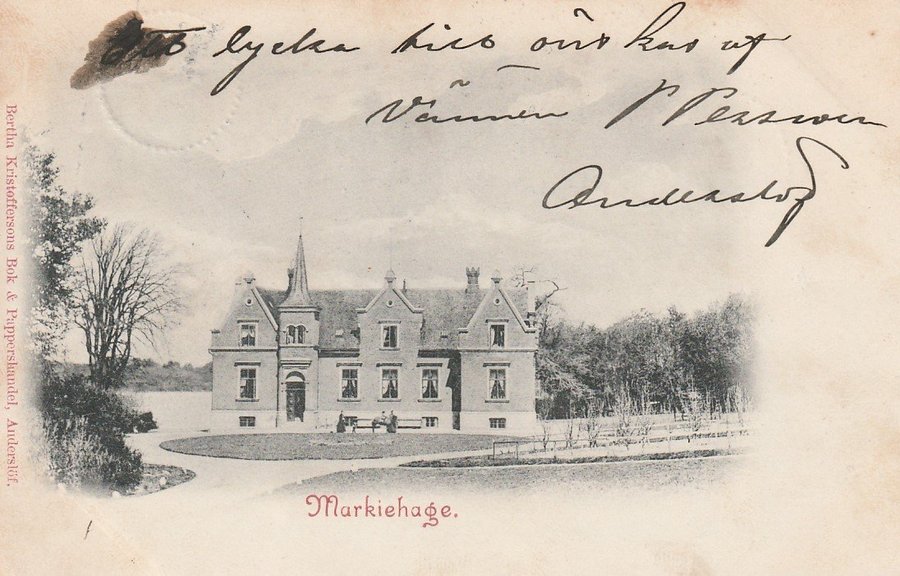 Ett lycka till önskas af
Vännen P Persson
Anderslöf
Bertha Kristoffersons Bok & Pappershandel, Anderslöf.
Markiehage.